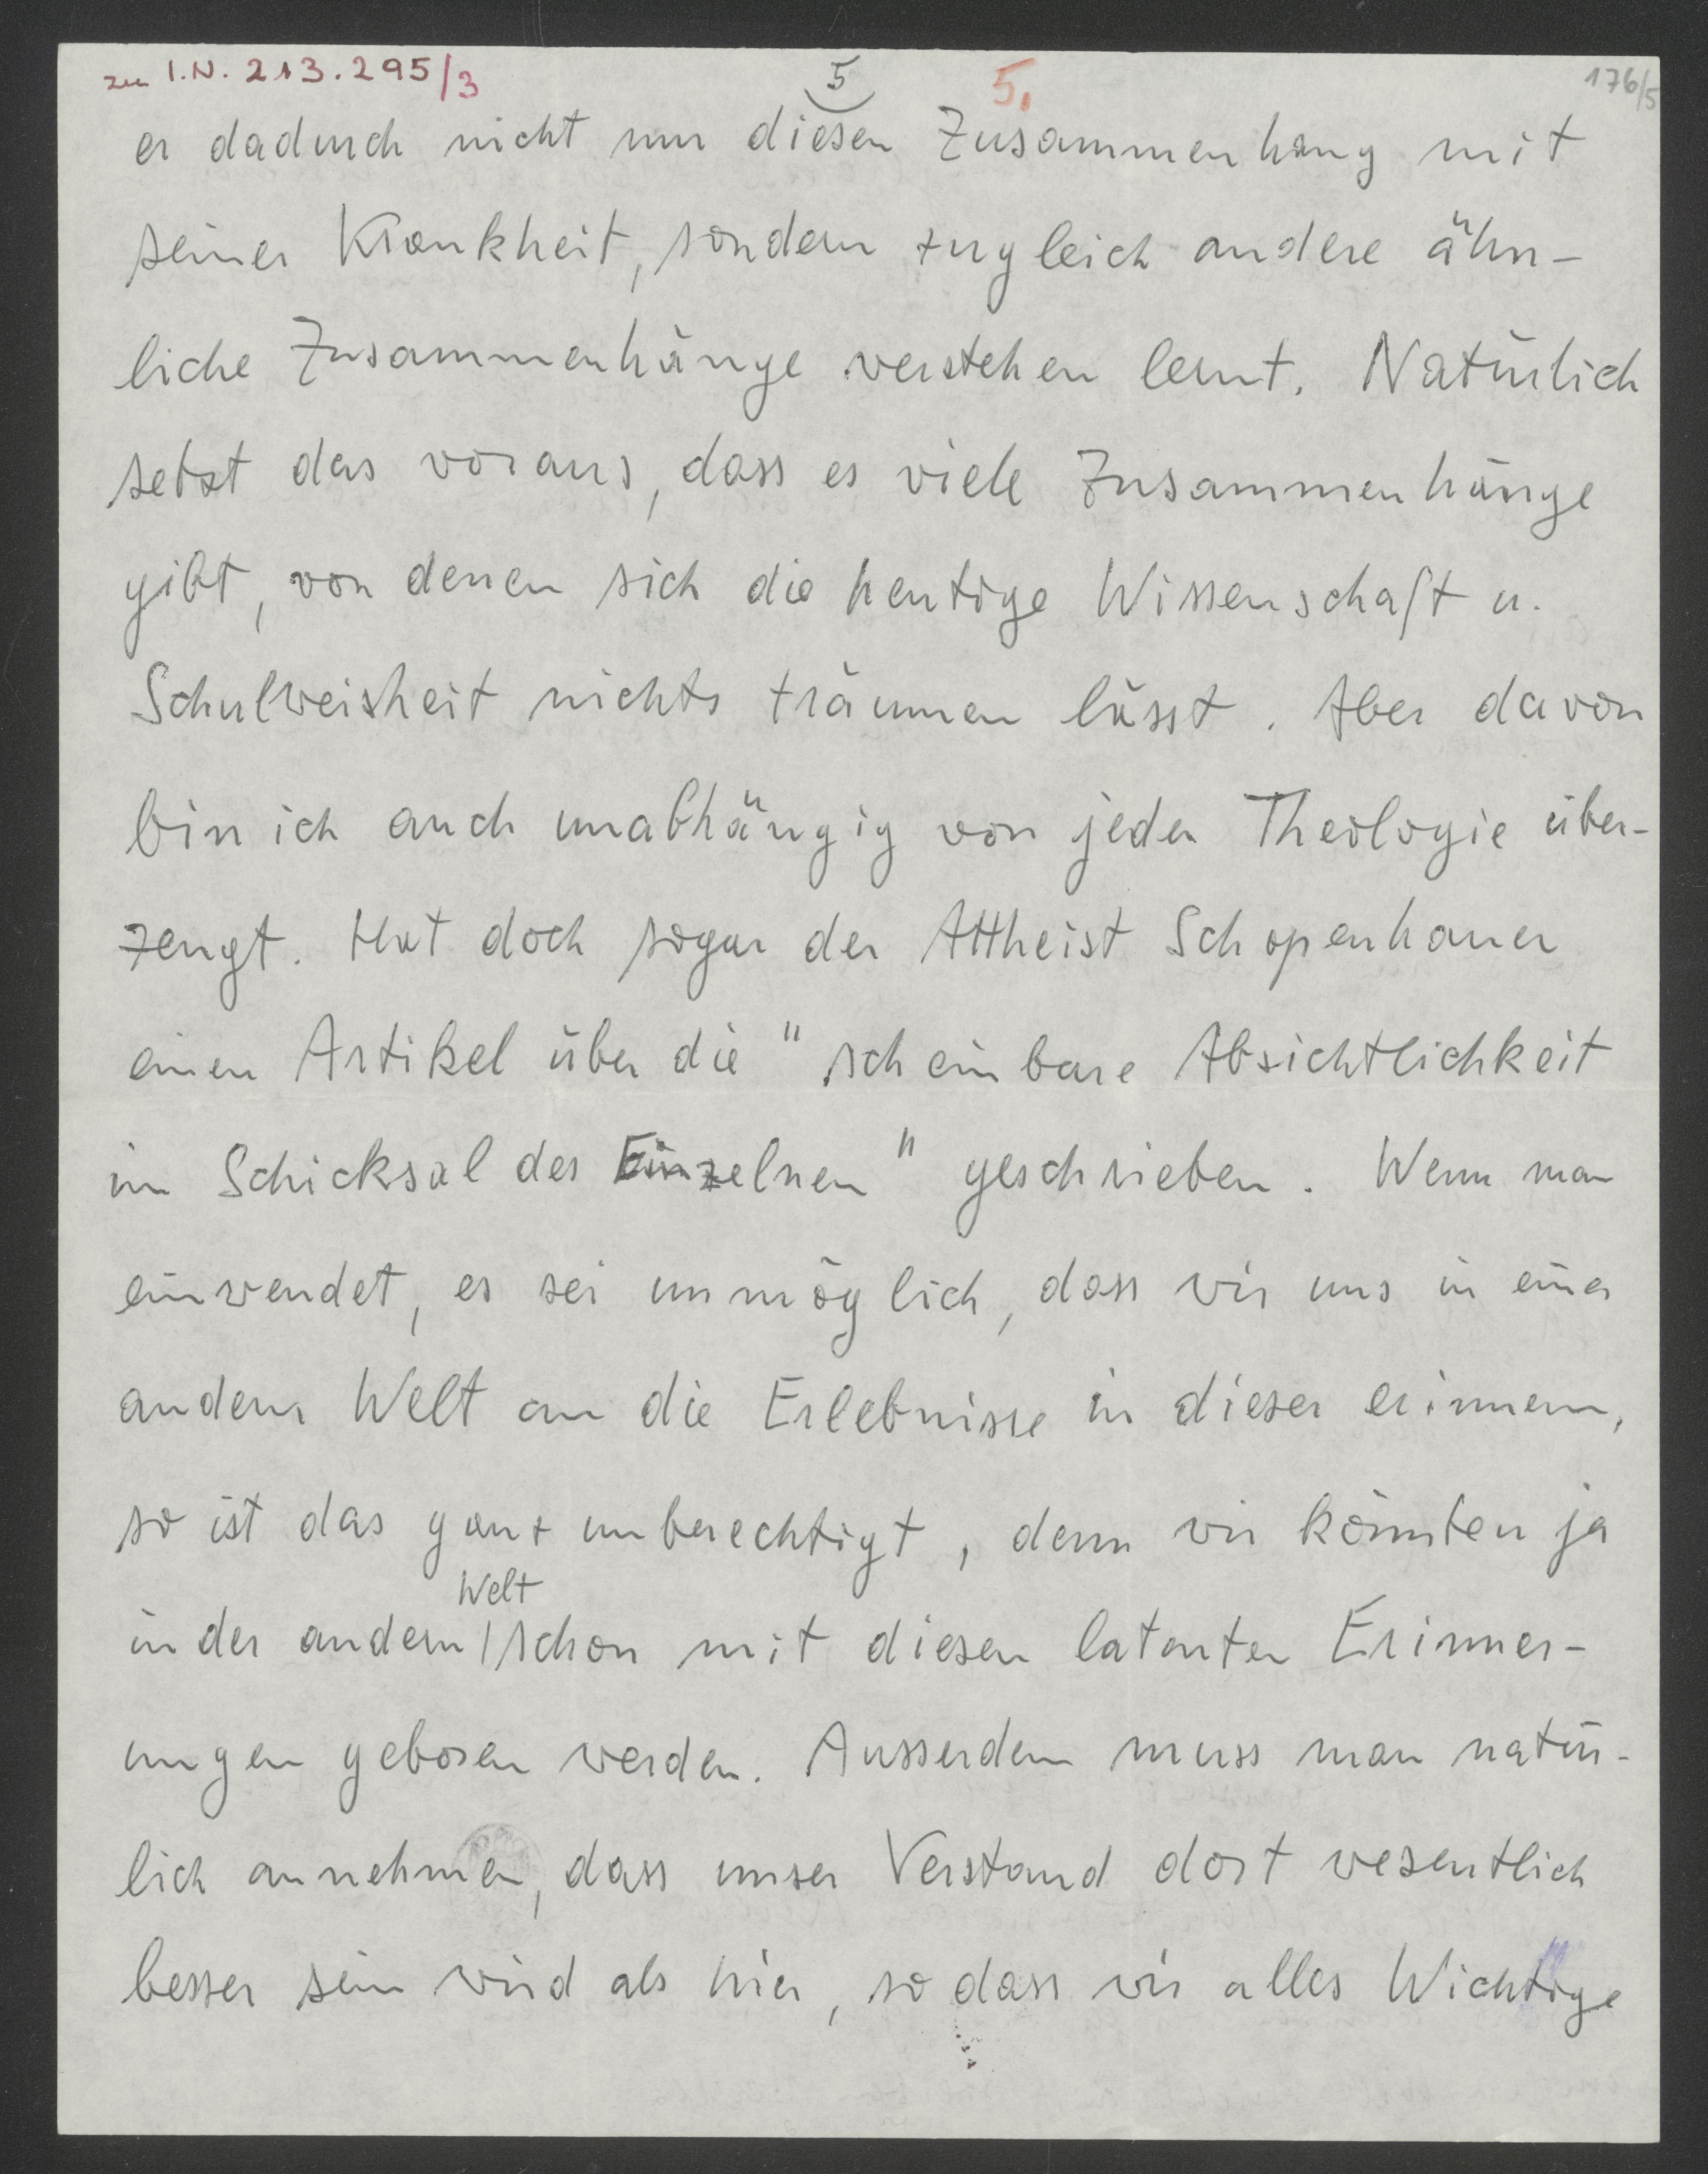 zu I.N. 213.295/3 5 5. 176/5
er dadurch nicht nur diesen Zusammenhang mit
seiner Krankheit, sondern zugleich andere ähn-
liche Zusammenhänge verstehen lernt. Natürlich
setzt das voraus, dass es viele Zusammenhänge
gibt, von denen sich die heutige Wissenschaft u.
Schulweisheit nichts träumen lässt. Aber davon
bin ich auch unabhängig von jeder Theologie über-
zeugt. Hat doch sogar der Attheist Schopenhauer
einen Artikel über die "scheinbare Absichtlichkeit
im Schicksal des Einzelnen" geschrieben. Wenn man
einwendet, es sei unmöglich, dass wir uns in einer
andern Welt an die Erlebnisse in dieser erinnern,
so ist das ganz unberechtigt, denn wir könnten ja
Welt
in der andern | schon mit diesen latenten Erinner-
ungen geboren werden. Ausserdem muss man natür-
lich annehmen, dass unser Verstand dort wesentlich
besser sein wird als hier, so dass wir alles Wichtige